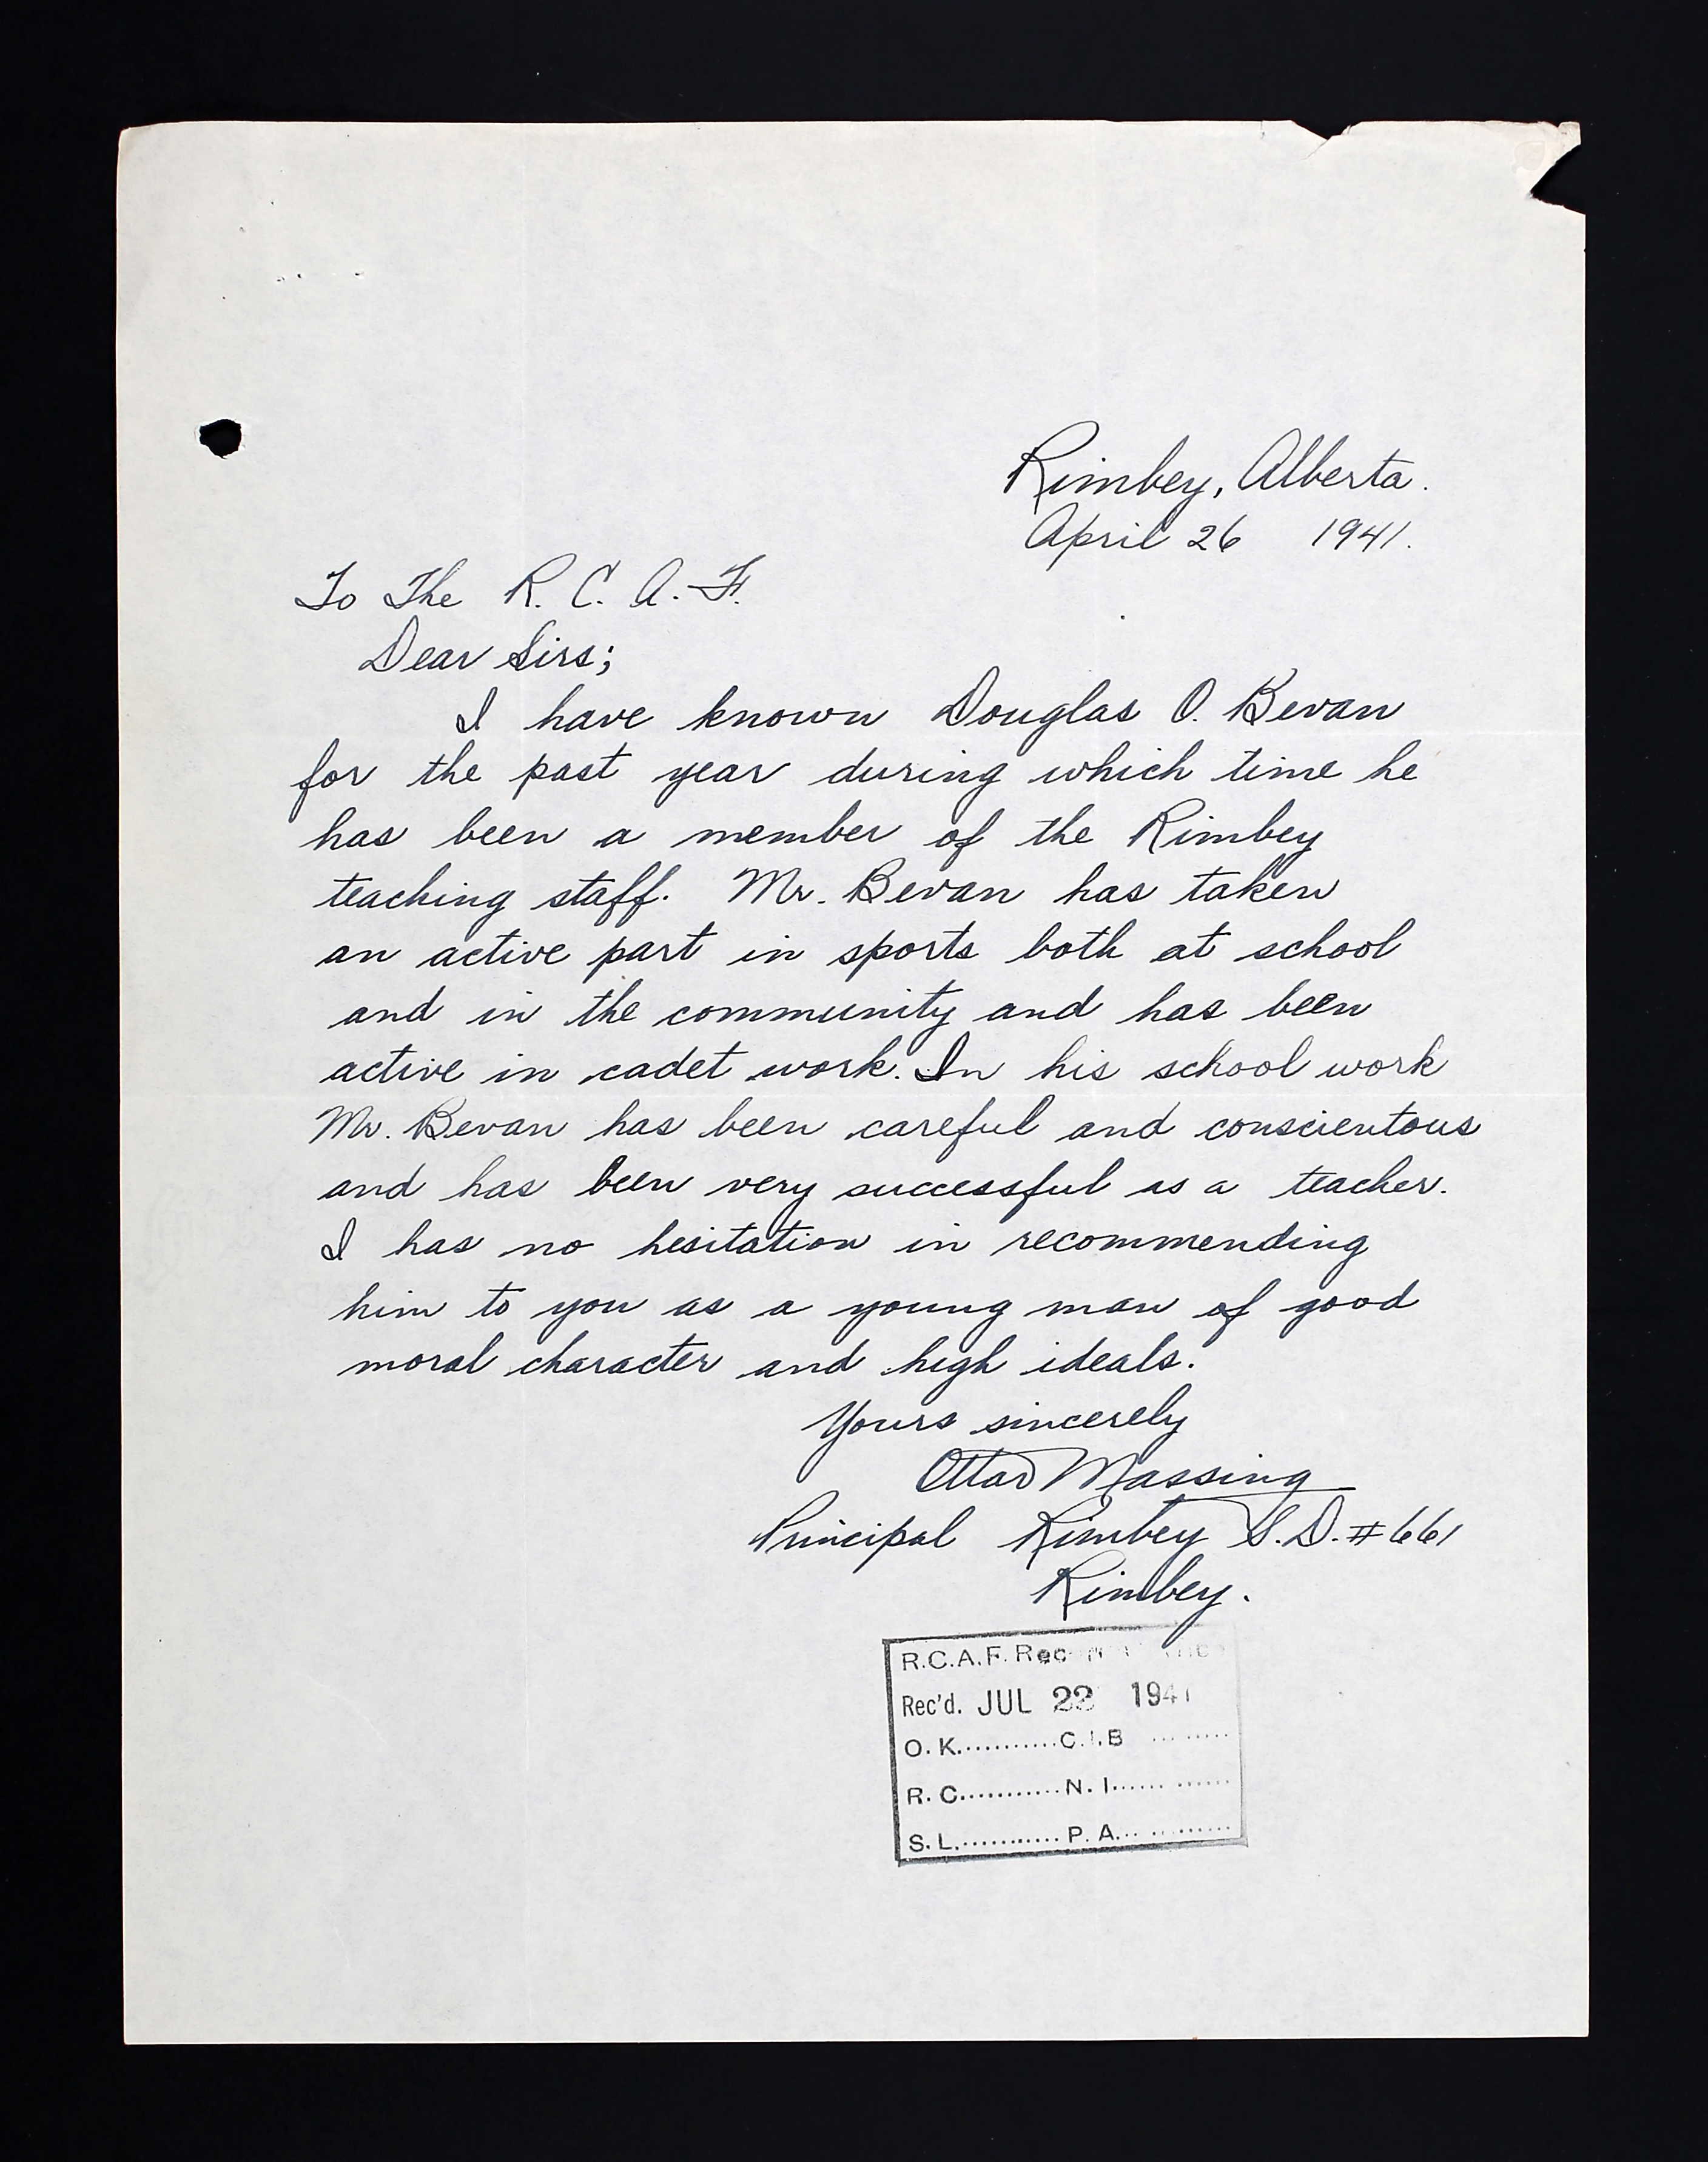 Rimbey, Alberta.
April 26 1941.
To The R. C. A. F.
Dear Sirs;
I have known Douglas O. Bevan
for the past year during which time he
has been a member of the Rimbey
teaching staff. Mr. Bevan has taken
an active part in sports both at school
and in the community and has been
active in cadet work. In his school work
Mr. Bevan has been careful and conscientous
and has been very successful as a teacher.
I has no hesitation in recommending
him to you as a young man of good
moral character and high ideals.
Yours sincerely
Ottar Massing
Principal Rimbey S.D. #661
Rimbey.
R.C.A.F.
Rec'd. JUL 22 1941
O. K...........C.I.B .........
R. C...........N. I............
S. L...........P. A............